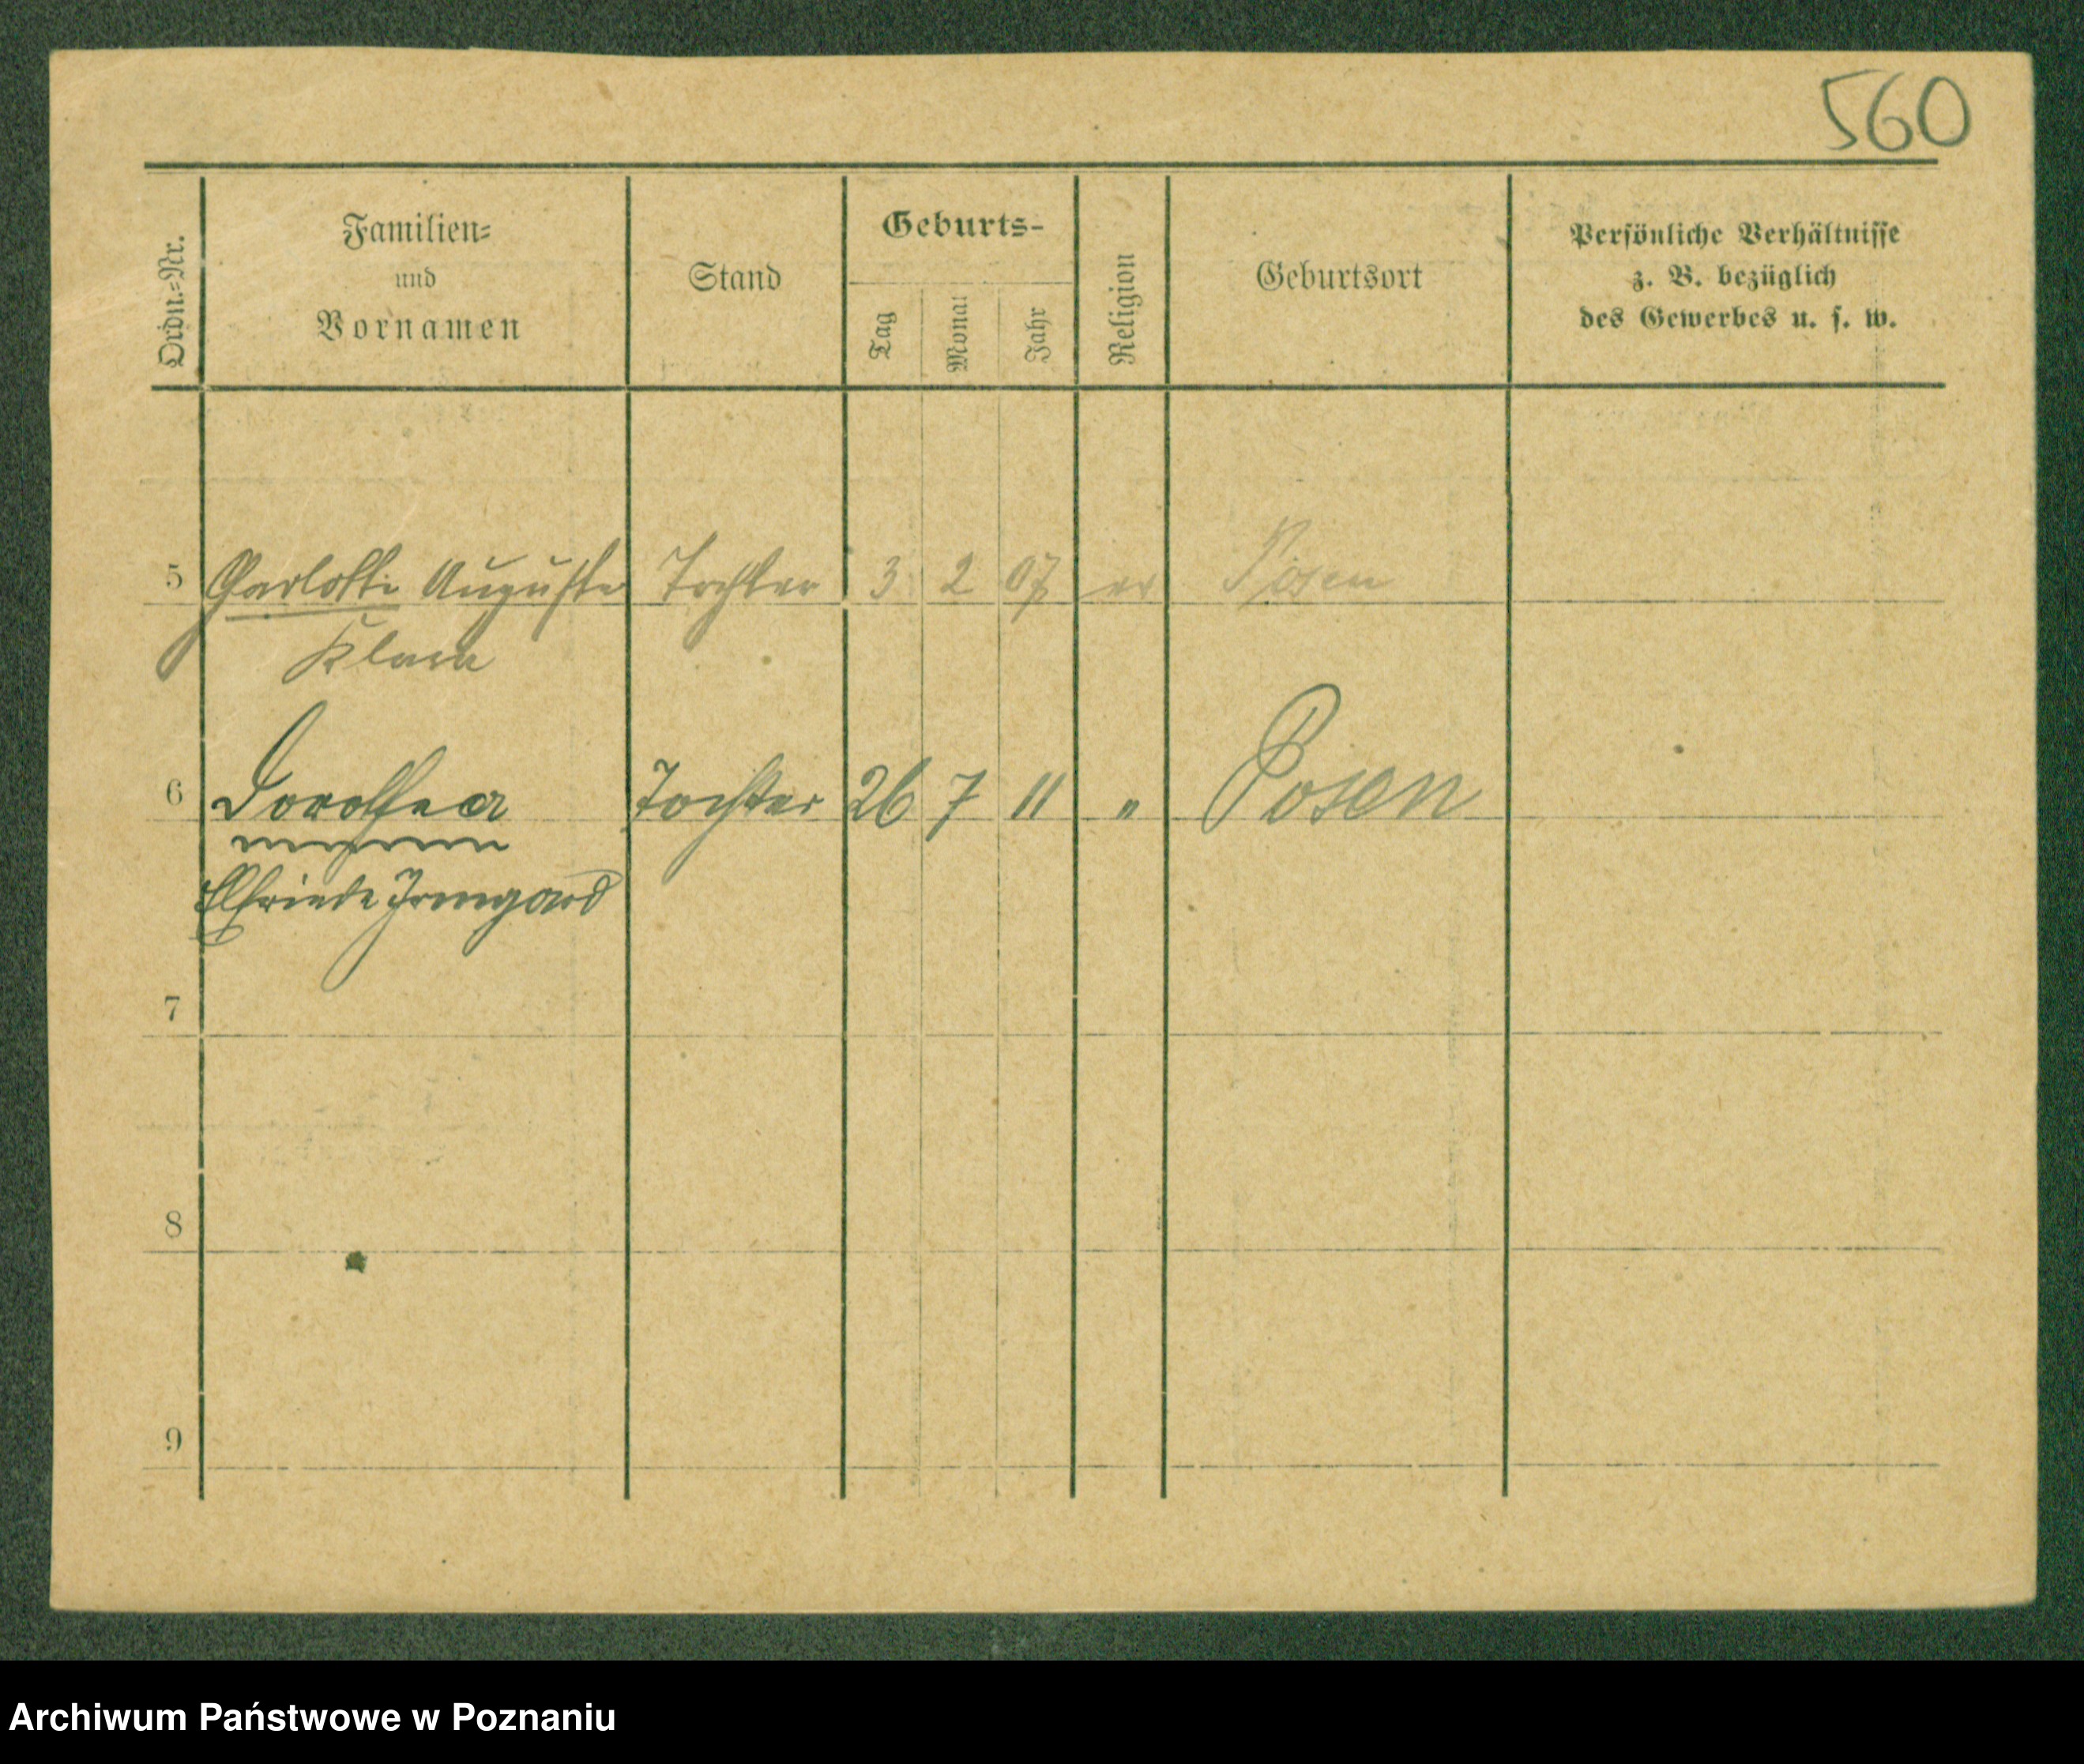 560
Ordn.-Nr.
Familien-
und
Vornamen
Stand
Geburts-
Tag
Monat
Jahr
Religion
Geburtsort
Persönliche Verhältnisse
z. B. bezüglich
des Gewerbes u. s. w.
5 Charlotte Auguste Tochter 3 2 07 ev Posen
Klara
6 Dorothea Tochter 26 7 11 " Posen
Elfriede Irmgard
7
8
9
Archiwum Państwowe w Poznaniu